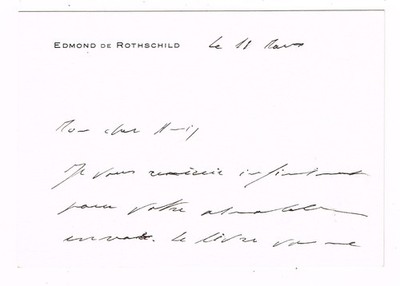 EDMOND DE ROTHSCHILD
Le 18 Mars
Mon cher
Je vous remercie infiniment
pour votre aimable
envoi. Le livre va me